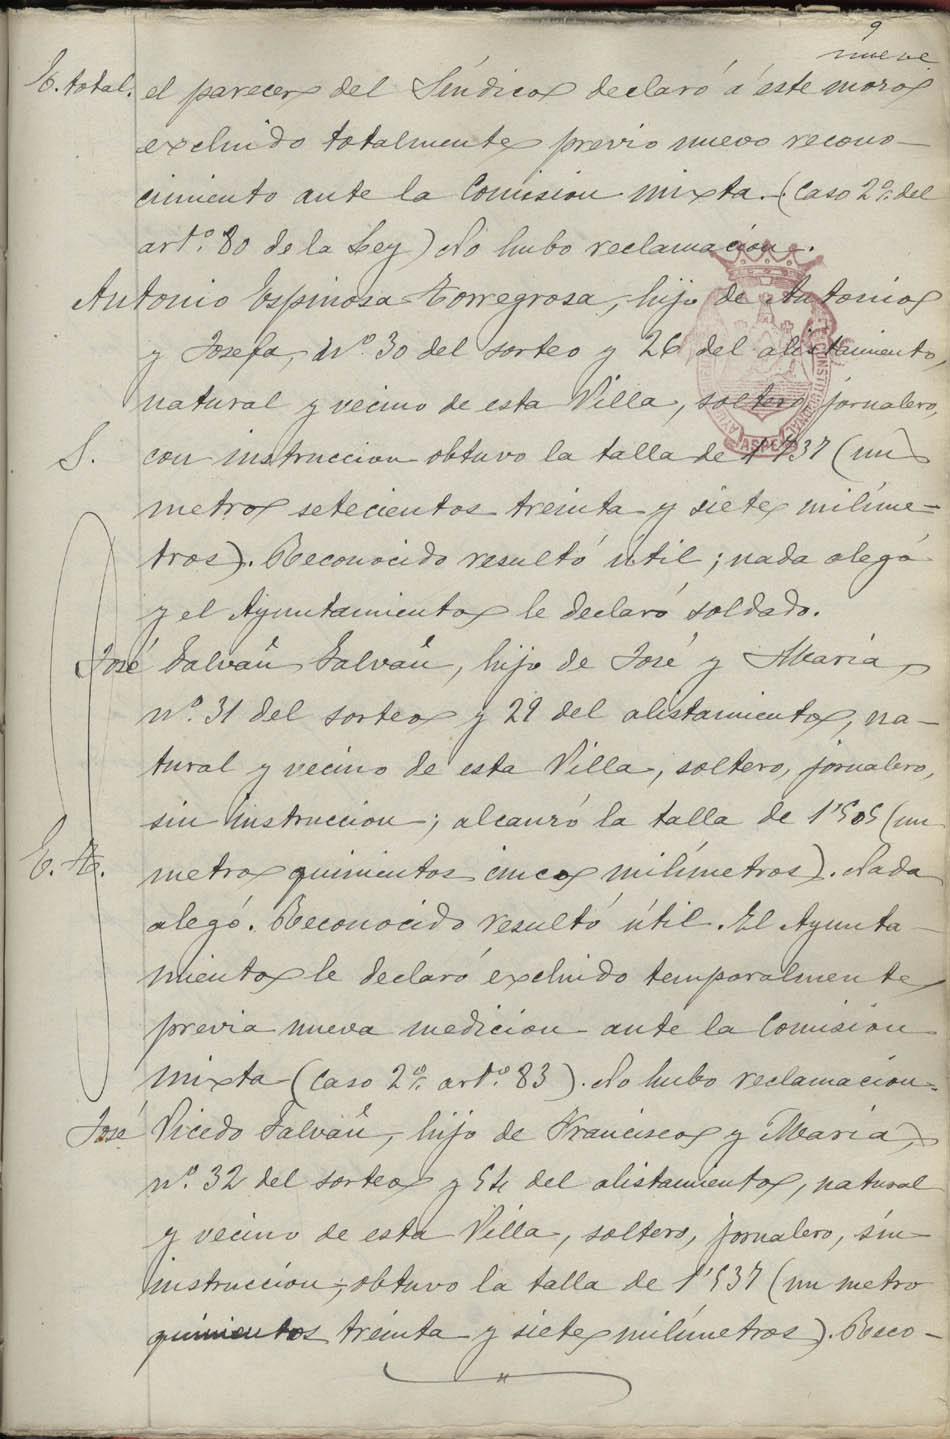 9
nueve
E. total. el parecer del Síndico declaró á este mozo
excluido totalmente previo nuevo recono-
cimiento ante la Comision mixta. (Caso 2º del
artº. 80 de la Ley) No hubo reclamación.
Antonio Espinosa Torregrosa, hijo de Antonio
y Josefa, nº. 30 del sorteo y 26 del alistamiento,
natural y vecino de esta Villa, soltero, jornalero,
S. con instruccion obtuvo la talla de 1'737 (un
metro setecientos treinta y siete milíme-
tros). Reconocido resultó útil; nada alegó
y el Ayuntamiento le declaró soldado.
José Galvañ Galvañ, hijo de José y María,
nº. 31 del sorteo y 29 del alistamiento, na-
tural y vecino de esta Villa, soltero, jornalero,
sin instruccion; alcanzó la talla de 1'505 (un
E. T. metro quinientos cinco milímetros). Nada
alegó. Reconocido resultó útil. El Ayunta-
miento le declaró excluido temporalmente
previa nueva medicion ante la Comision
mixta (Caso 2º artº. 83). No hubo reclamacion.
José Vicedo Galvañ, hijo de Francisco y María,
nº. 32 del sorteo y 54 del alistamiento, natural
y vecino de esta Villa, soltero, jornalero, sin
instruccion, obtuvo la talla de 1'537 (un metro
quinientos treinta y siete milímetros). Reco-